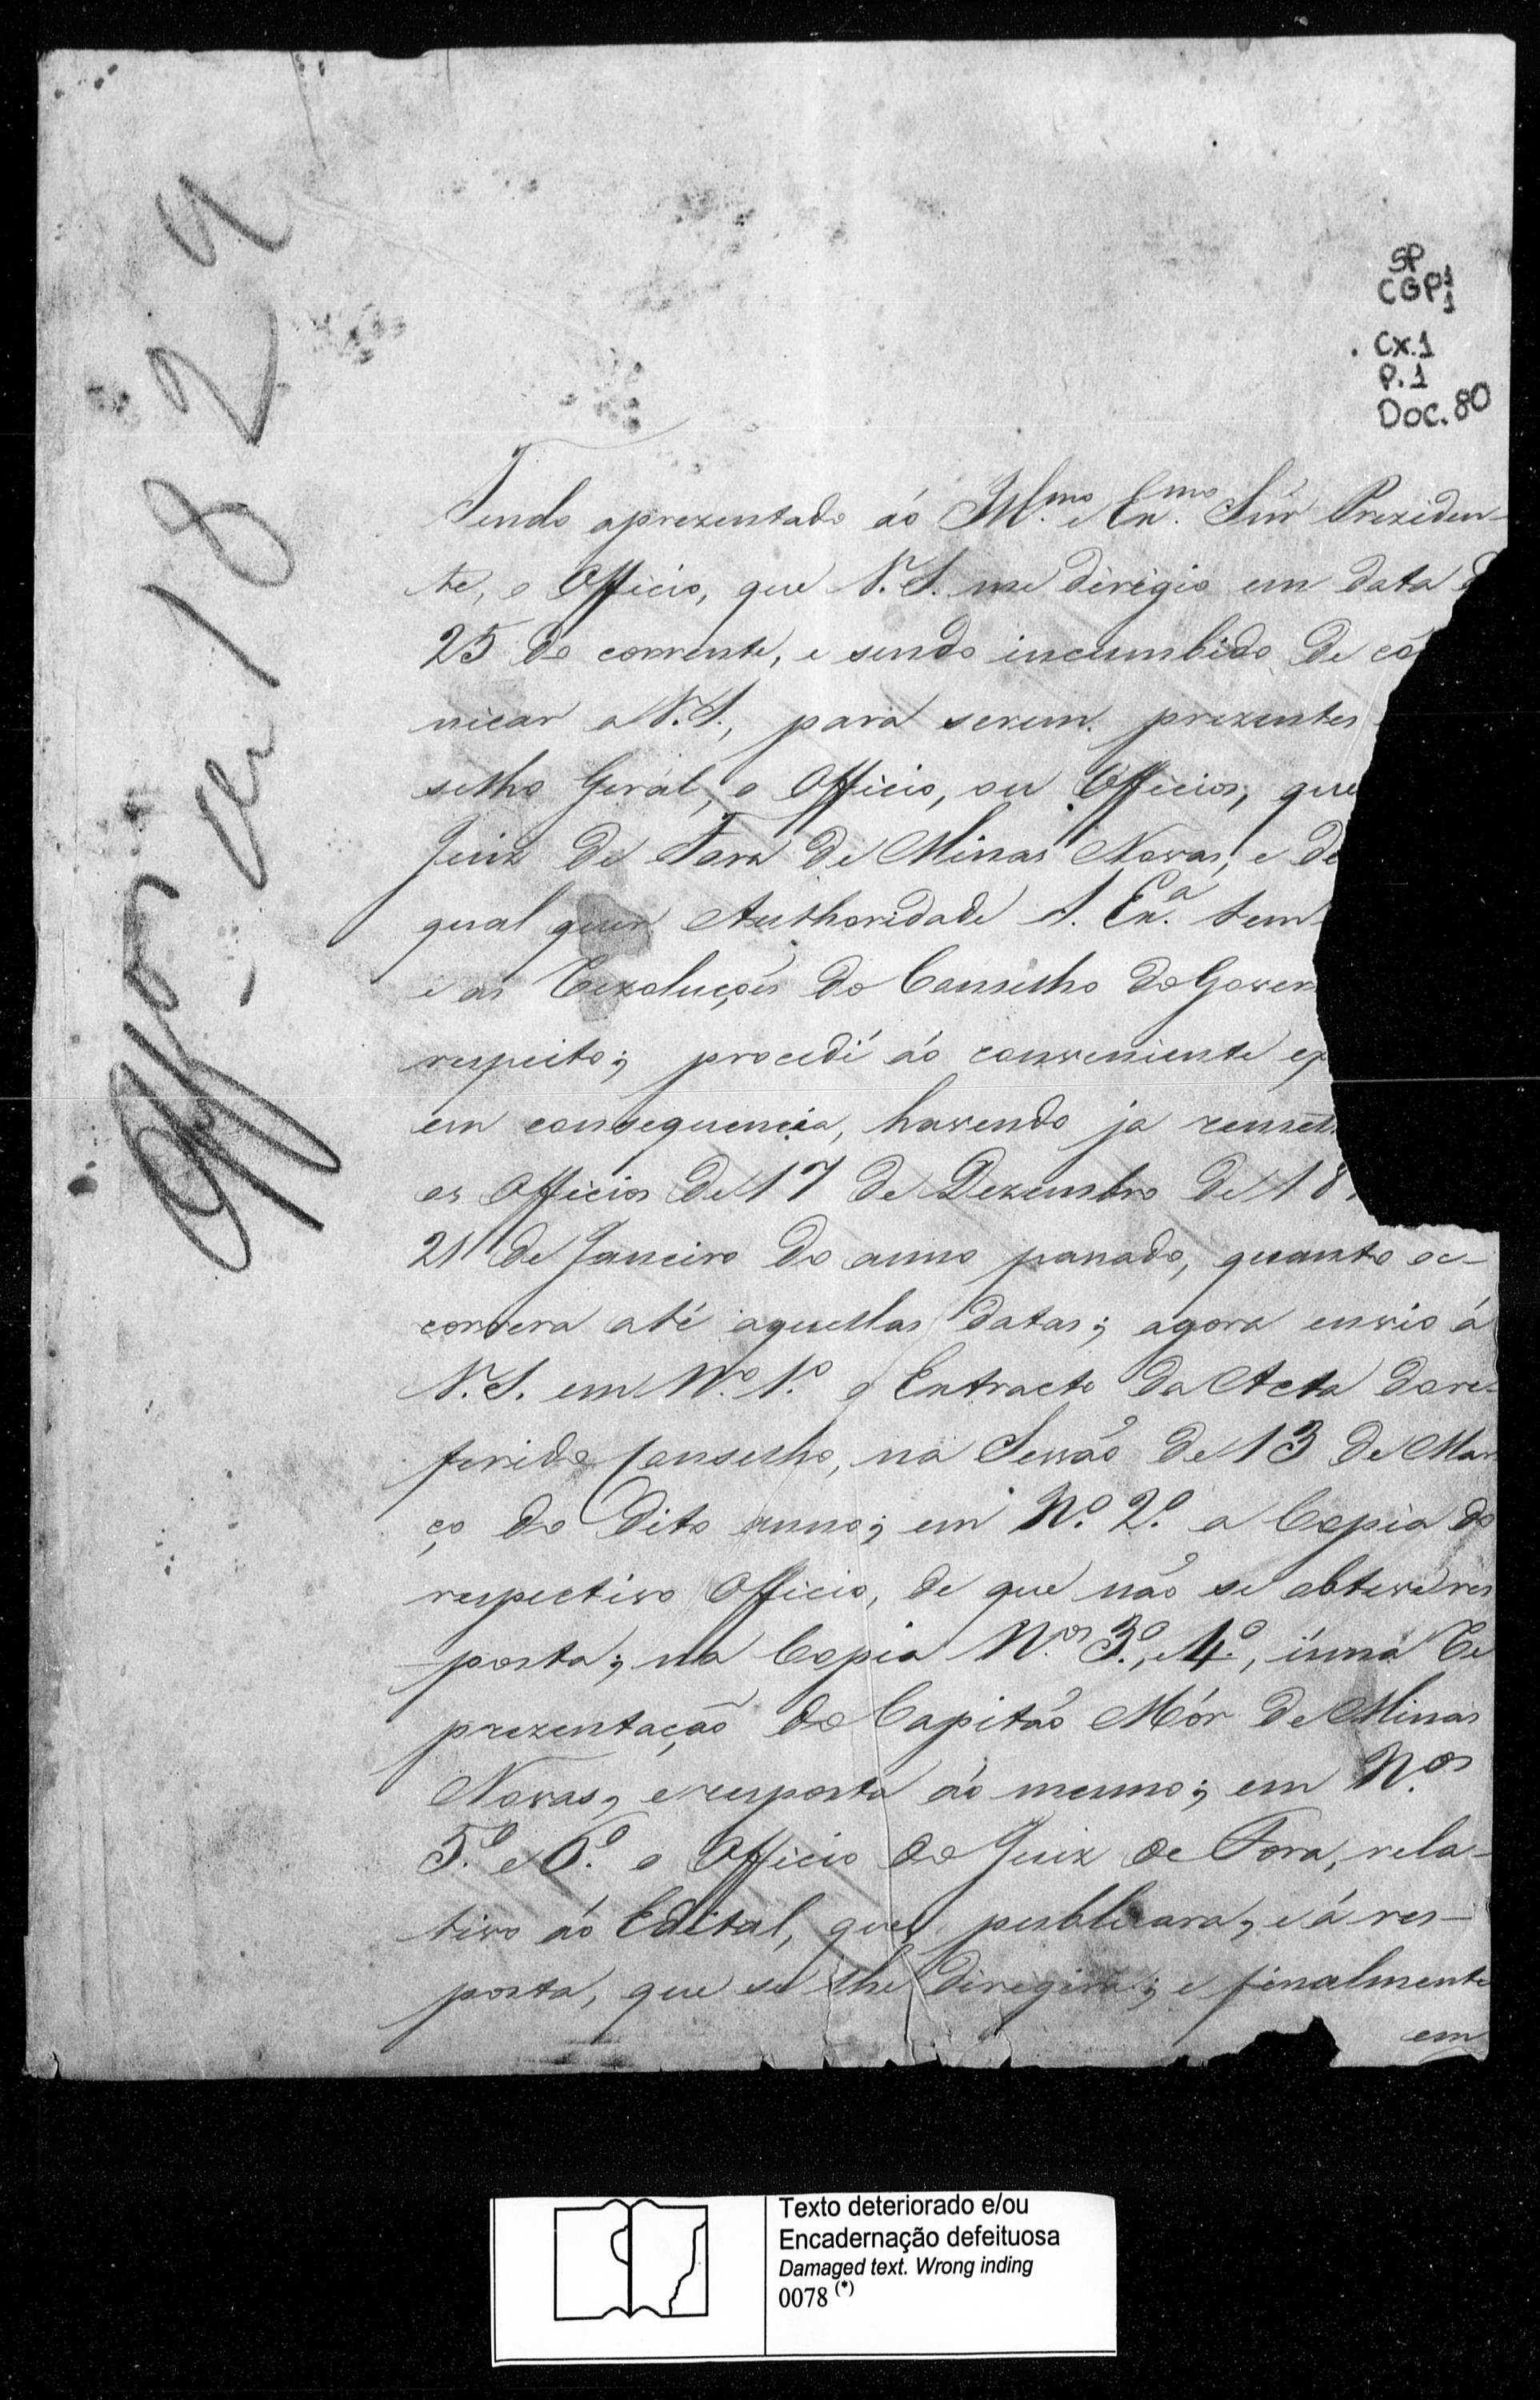 1829
SP
CGP1
1
Cx.1
P.1
Doc. 80
Tendo aprezentado áo Ill.mo e Ex.mo Snr̃ Preziden-
te, o Officio, que V.S. me dirigio em data d
25 do corrente, e sendo incumbido de cõ
nicar a V.S., para serem prezentes
selho Geral, o Officio, ou Officios, que
Juiz de Fora de Minas Novas, e de
qual quer Authoridade S. Ex.a tem
e as Rezoluções do Conselho do Govern
respeito; procedi áo conveniente ex
em consequencia, havendo ja remett
os Officios de 17 de Dezembro de 18
21 de Janeiro do anno passado, quanto oc-
correra até aquellas datas; agora envio á
V.S. em N.o 1.o o Extracto da Acta do re-
ferido Conselho, na Sessão de 13 de Mar
ço do dito anno; em N.o 2.o a Copia do
respectivo Officio, de que não se obteve res
posta; na Copia N.os 3.o, e 4.o, uma Re
prezentação do Capitão Mór de Minas
Novas, e resposta áo mesmo; em N.os
5.o e 6.o o Officio do Juiz de Fora, rela-
tivo áo Edital, que publicara, e á res-
posta, que se lhe dirigira; e finalmente
em
Texto deteriorado e/ou
Encadernação defeituosa
Damaged text. Wrong inding
0078 (*)